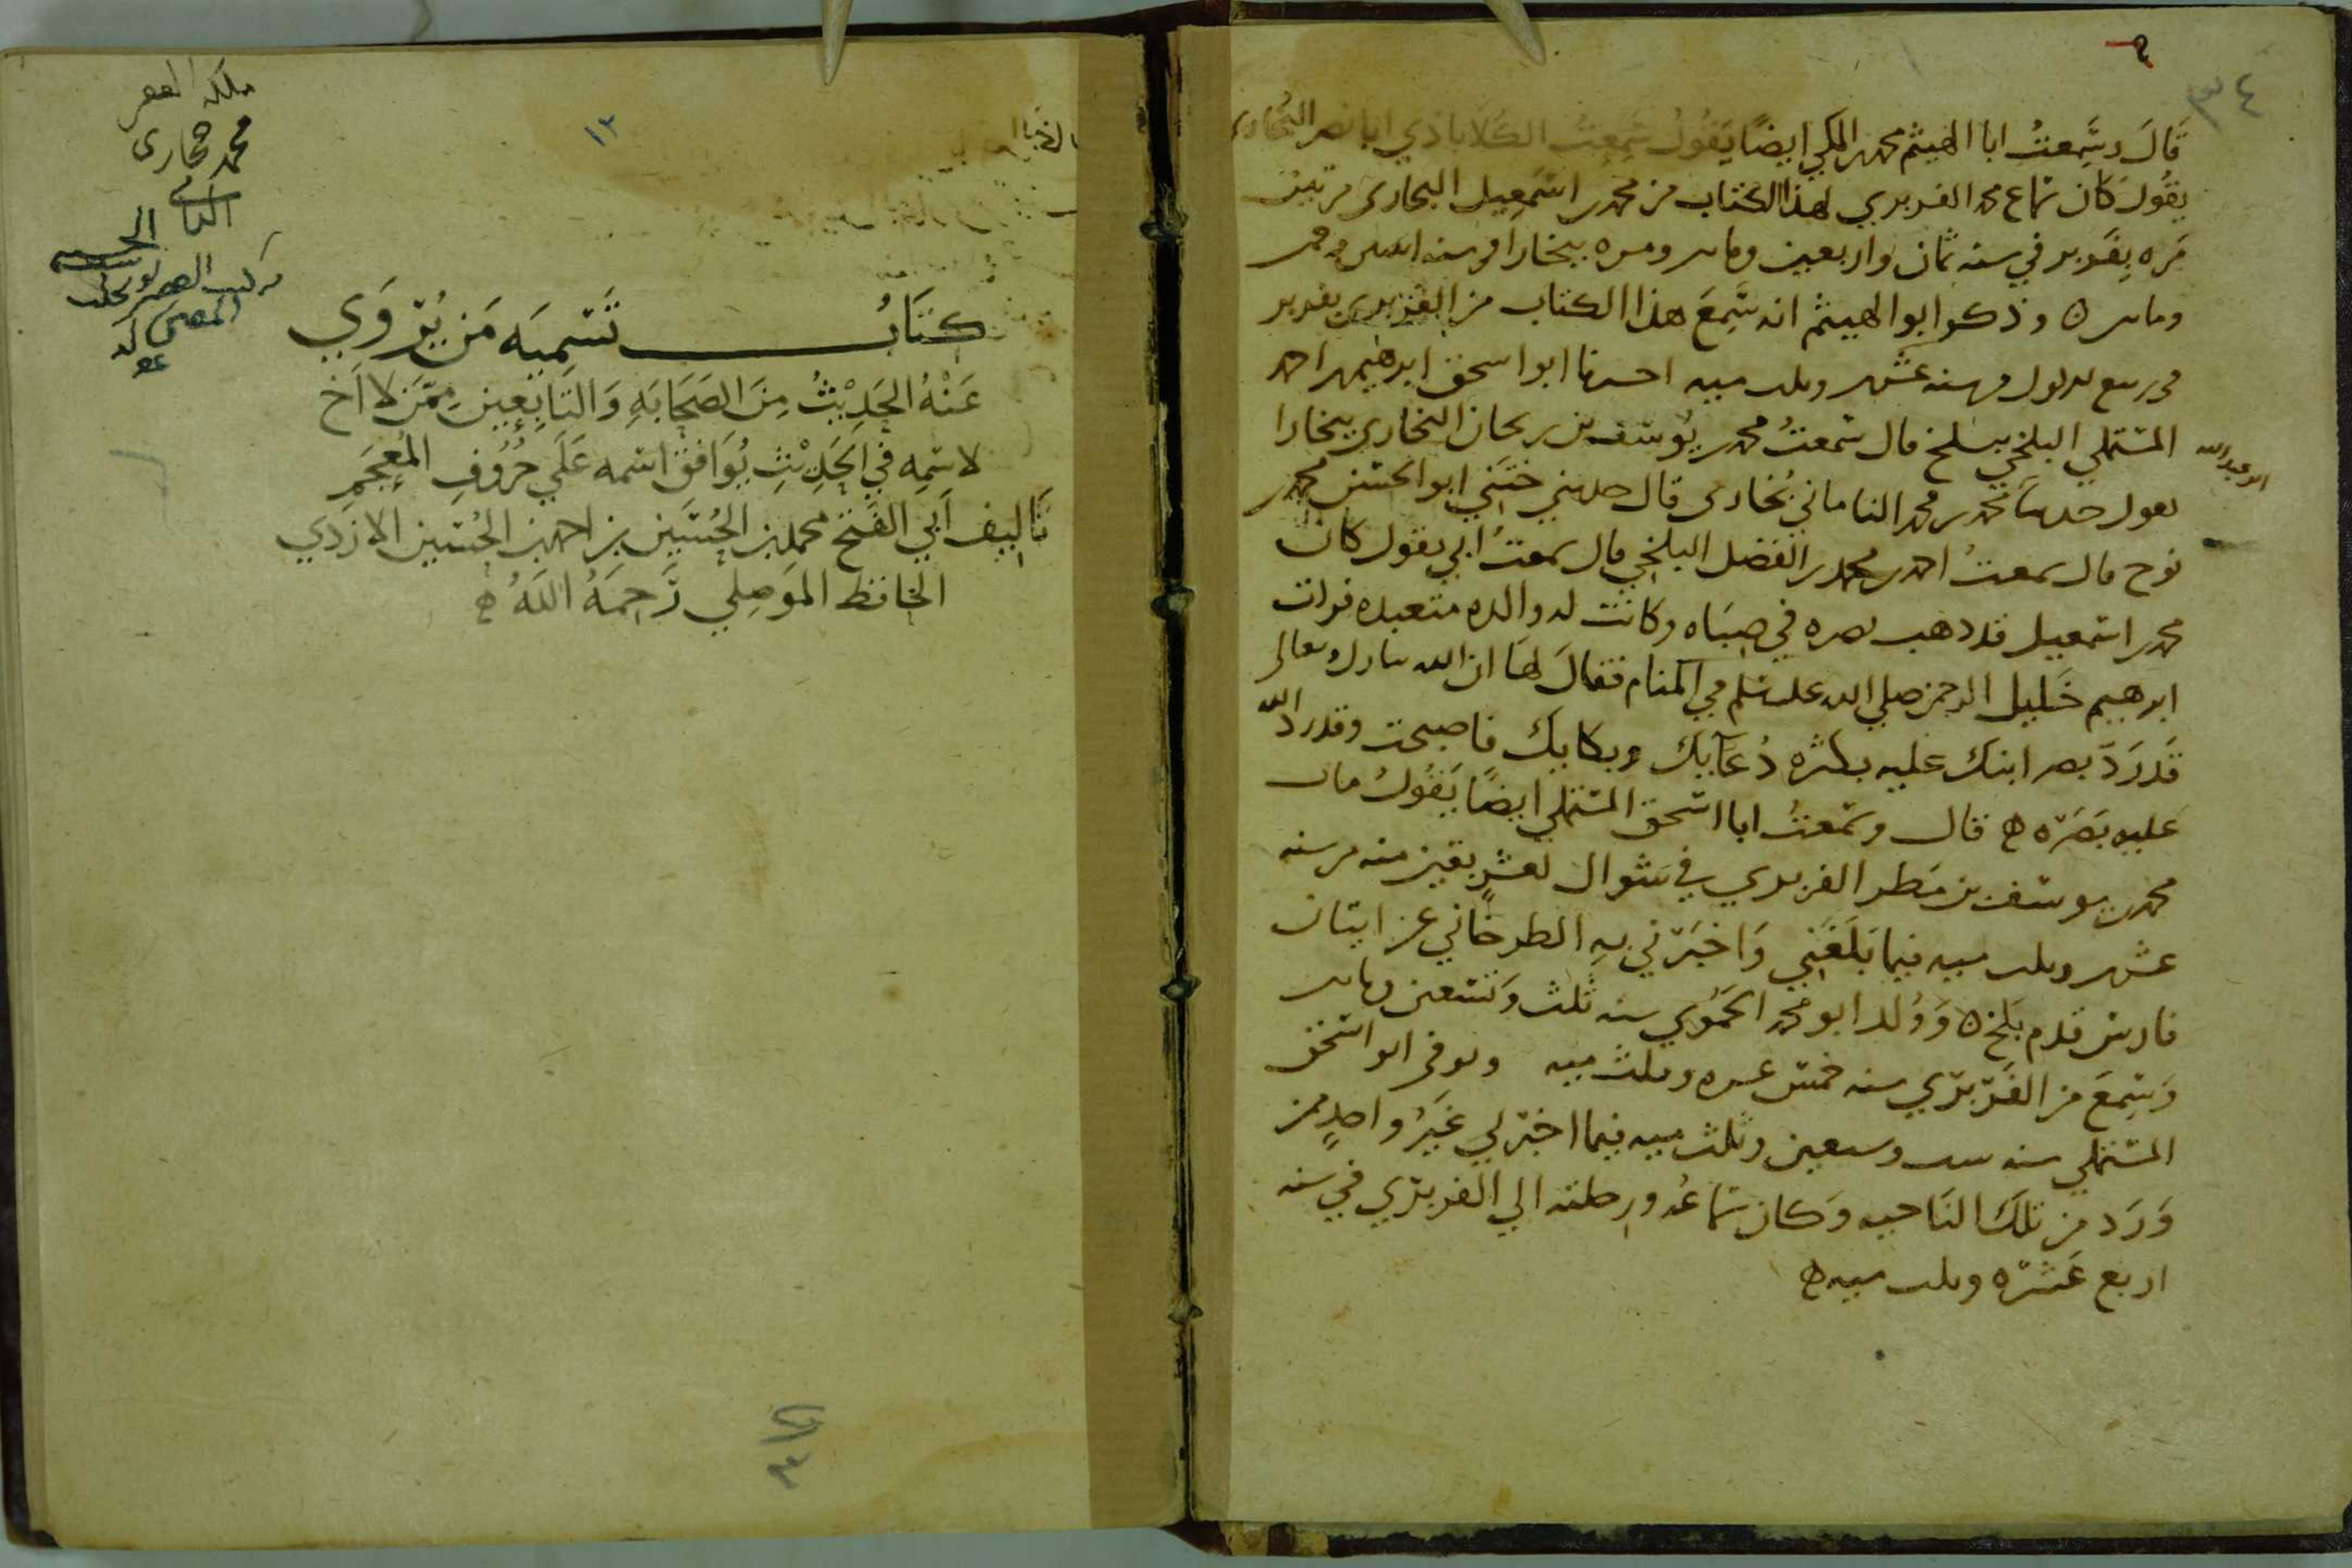 ٣٤
قَالَ وسَمِعتُ ابا الهيثم محمد بن المكي ايضًا يَقُولُ سَمِعتُ الكَلاباذي ابا نصر البُخاري
يقُولُ كان سَماع محمد الفربري لهذا الكتاب من محمد بن اسمعيل البخاري مرتين
مَره بِفَربر في سنه ثمان واربعين ومايتين ومره ببخارا في سنه اثنتين وخمسين
ومايتين ه وذكر ابو الهيثم انه سَمِعَ هذا الكتاب من الفربري بفربر
في ربيع الاول سنه عشرين وثلث ميه اخبرنا ابو اسحق ابرهيم بن احمد
المستملي البلخي ببلخ قال سَمعتُ محمد بن يُوسُف بن ريحان البخاري ببخارا
ابو عبد الله
يقول حدثنا محمد بن محمد الناماني بُخاري قال حدثني خَتَني ابو الحسَن محمد بن
نوح قال سمعتُ احمد بن محمد بن الفضل البلخي قال سمعتُ ابي يقول كان
محمد بن اسمعيل قد ذهب بصره في صِبَاه وكانت له والده متعبده فرات
ابرهيم خَليل الرحمن صلي الله عليه وسلم في المنام فقالَ لها ان الله تبارك وتعالى
قَد رَدّ بصر ابنك عليه بكثره دُعَآيِك وبكايِك فاصبحت وقد رد الله
عليه بَصَره ه قال وسَمعتُ ابا اسحق المستملي ايضًا يَقُولُ مات
محمد بن يوسف بن مَطر الفربري في شوال لعشرٍ بقين منه من سنه
عشرين وثلث ميه فيما بَلَغَني وَاخبَرَني بِهِ الطرخاني عن انسان
فارسي قدم بَلخ ه وَوُلد ابو محمد الحَمّوي سنه ثلث وتسعين ومايتين
وَسَمِعَ من الفَرَبرَي سنه خمس عشره وثلث ميه وتوفي ابو اسحق
المستملي سنه ست وسبعين وثلث ميه فيما اخبرني غَيرُ واحدٍ ممن
وَرَدَ من تلكَ الناحيه وَكان سَماعُه ورحلته الي الفربري في سنه
اربع عَشره وثلث ميه ه
ملكه الفقير
محمد حجازى
الحسيني
١٢
كتَابُ تَسمِيَه مَن يُروَي
عَنْهُ الحَدِيْثُ مِنَ الصَحَابَهِ وَالتَابِعِين مِمَّن لا اَخ
لاسمِهِ في الحَدِيْثِ يُوَافق اسمه عَلَي حُرُوفِ المُعجَمِ
تَاليف اَبي الفَتح محمد بن الحُسَين بن احمد بن الحُسَين الازدي
الحَافظ المَوصِلي رَحِمَهُ اللَهُ ه